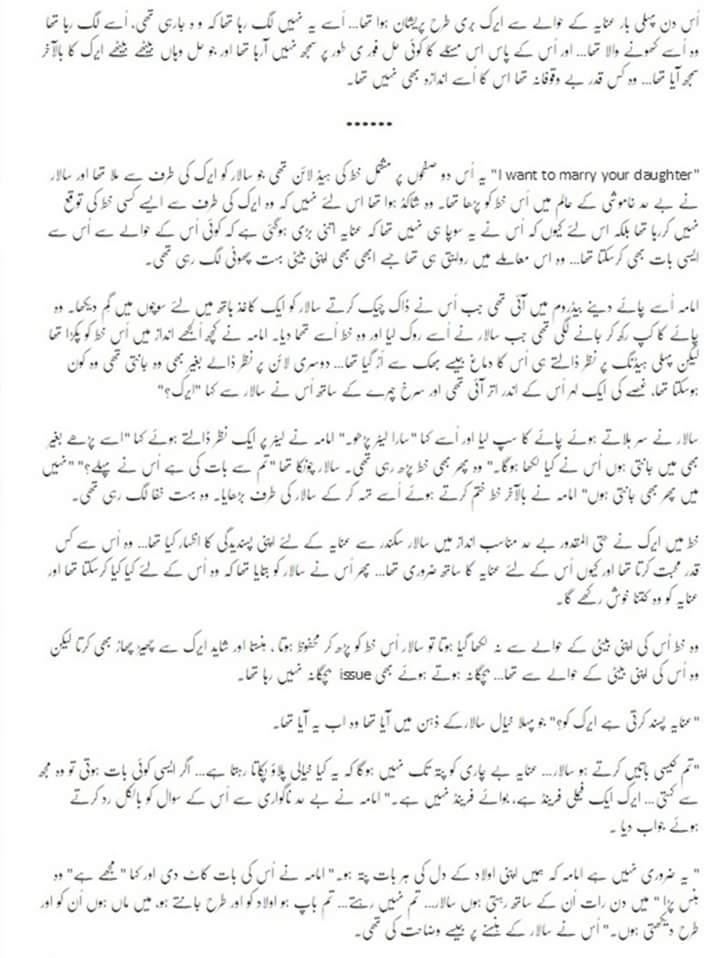 اُس دن پہلی بار عنایہ کے حوالے سے ایرک بری طرح پریشان ہوا تھا... اُسے یہ نہیں لگ رہا تھا کہ وہ جارہی تھی، اُسے لگ رہا تھا
وہ اُسے کھونے والا تھا... اور اُس کے پاس اس مسئلے کا کوئی حل فوری طور پر سمجھ نہیں آرہا تھا اور جو حل وہاں بیٹھے بیٹھے ایرک کا بالآخر
سمجھ آیا تھا... وہ کس قدر بے وقوفانہ تھا اس کا اُسے اندازہ بھی نہیں تھا۔
••••••
"I want to marry your daughter" یہ اُس دو صفحوں پر مشتمل خط کی ہیڈ لائن تھی جو سالار کو ایرک کی طرف سے ملا تھا اور سالار
نے بے حد خاموشی کے عالم میں اُس خط کو پڑھا تھا۔ وہ شاکڈ ہوا تھا اس لئے نہیں کہ وہ ایرک کی طرف سے ایسے کسی خط کی توقع
نہیں کررہا تھا بلکہ اس لئے کیوں کہ اُس نے یہ سوچا ہی نہیں تھا کہ عنایہ اتنی بڑی ہوگئی ہے کہ کوئی اُس کے حوالے سے اُس سے
ایسی بات بھی کرسکتا تھا... وہ اس معاملے میں روایتی ہی تھا جسے ابھی بھی اپنی بیٹی بہت چھوٹی لگ رہی تھی۔
امامہ اُسے چائے دینے بیڈروم میں آئی تھی جب اُس نے ڈاک چیک کرتے سالار کو ایک کاغذ ہاتھ میں لئے سوچوں میں گم دیکھا۔ وہ
چائے کا کپ رکھ کر جانے لگی تھی جب سالار نے اُسے روک لیا اور وہ خط اُسے تھما دیا۔ امامہ نے کچھ اُلجھے انداز میں اُس خط کو پکڑا تھا
لیکن پہلی ہیڈنگ پر نظر ڈالتے ہی اُس کا دماغ جیسے بھک سے اُڑ گیا تھا... دوسری لائن پر نظر ڈالے بغیر بھی وہ جانتی تھی وہ کون
ہوسکتا تھا، غصے کی ایک لہر اُس کے اندر اتر آئی تھی اور سرخ چہرے کے ساتھ اُس نے سالار سے کہا "ایرک؟"
سالار نے سر ہلاتے ہوئے چائے کا سپ لیا اور اُسے کہا "سارا لیٹر پڑھو۔" امامہ نے لیٹر پر ایک نظر ڈالتے ہوئے کہا "اسے پڑھے بغیر
بھی میں جانتی ہوں اُس نے کیا لکھا ہوگا۔" وہ پھر بھی خط پڑھ رہی تھی۔ سالار چونکا تھا "تم سے بات کی ہے اُس نے پہلے؟" "نہیں
میں پھر بھی جانتی ہوں" امامہ نے بالآخر خط ختم کرتے ہوئے اُسے تہہ کر کے سالار کی طرف بڑھایا۔ وہ بہت خفا لگ رہی تھی۔
خط میں ایرک نے حتی المقدور بے حد مناسب انداز میں سالار سکندر سے عنایہ کے لئے اپنی پسندیدگی کا اظہار کیا تھا... وہ اُس سے کس
قدر محبت کرتا تھا اور کیوں اُس کے لئے عنایہ کا ساتھ ضروری تھا... پھر اُس نے سالار کو بتایا تھا کہ وہ اُس کے لئے کیا کیا کرسکتا تھا اور
عنایہ کو وہ کتنا خوش رکھے گا۔
وہ خط اُس کی اپنی بیٹی کے حوالے سے نہ لکھا گیا ہوتا تو سالار اُس خط کو پڑھ کر محظوظ ہوتا ، ہنستا اور شاید ایرک سے چھیڑ چھاڑ بھی کرتا لیکن
وہ اُس کی اپنی بیٹی کے حوالے سے تھا... بچگانہ ہوتے ہوئے بھی issue بچگانہ نہیں رہا تھا۔
"عنایہ پسند کرتی ہے ایرک کو؟" جو پہلا خیال سالارکے ذہن میں آیا تھا وہ اب یہ آیا تھا۔
"تم کیسی باتیں کرتے ہو سالار... عنایہ بے چاری کو پتہ تک نہیں ہوگا کہ یہ کیا خیالی پلاؤ پکاتا رہتا ہے... اگر ایسی کوئی بات ہوتی تو وہ مجھ
سے کہتی... ایرک ایک فیملی فرینڈ ہے، بوائے فرینڈ نہیں ہے۔" امامہ نے بے حد ناگواری سے اُس کے سوال کو بالکل رد کرتے
ہوئے جواب دیا ۔
" یہ ضروری نہیں ہے امامہ کہ ہمیں اپنی اولاد کے دل کی ہر بات پتہ ہو۔" امامہ نے اُس کی بات کاٹ دی اور کہا "مجھے ہے" وہ
ہنس پڑا "میں دن رات اُن کے ساتھ رہتی ہوں سالار... تم نہیں رہتے... تم باپ ہو اولاد کو اور طرح جانتے ہو، میں ماں ہوں اُن کو اور
طرح دیکھتی ہوں۔" اُس نے سالار کے ہنسنے پر جیسے وضاحت کی تھی۔